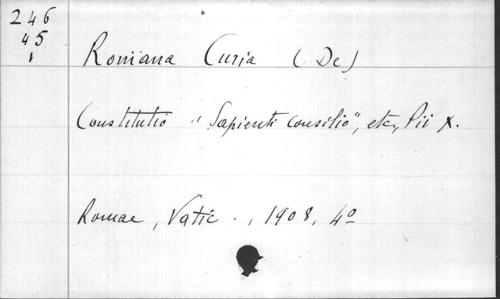 246
45
1
Romana Curia (De)
Constitutio "Sapienti consilio", etc, Pii X.
Romae, Vatic., 1908, 4º